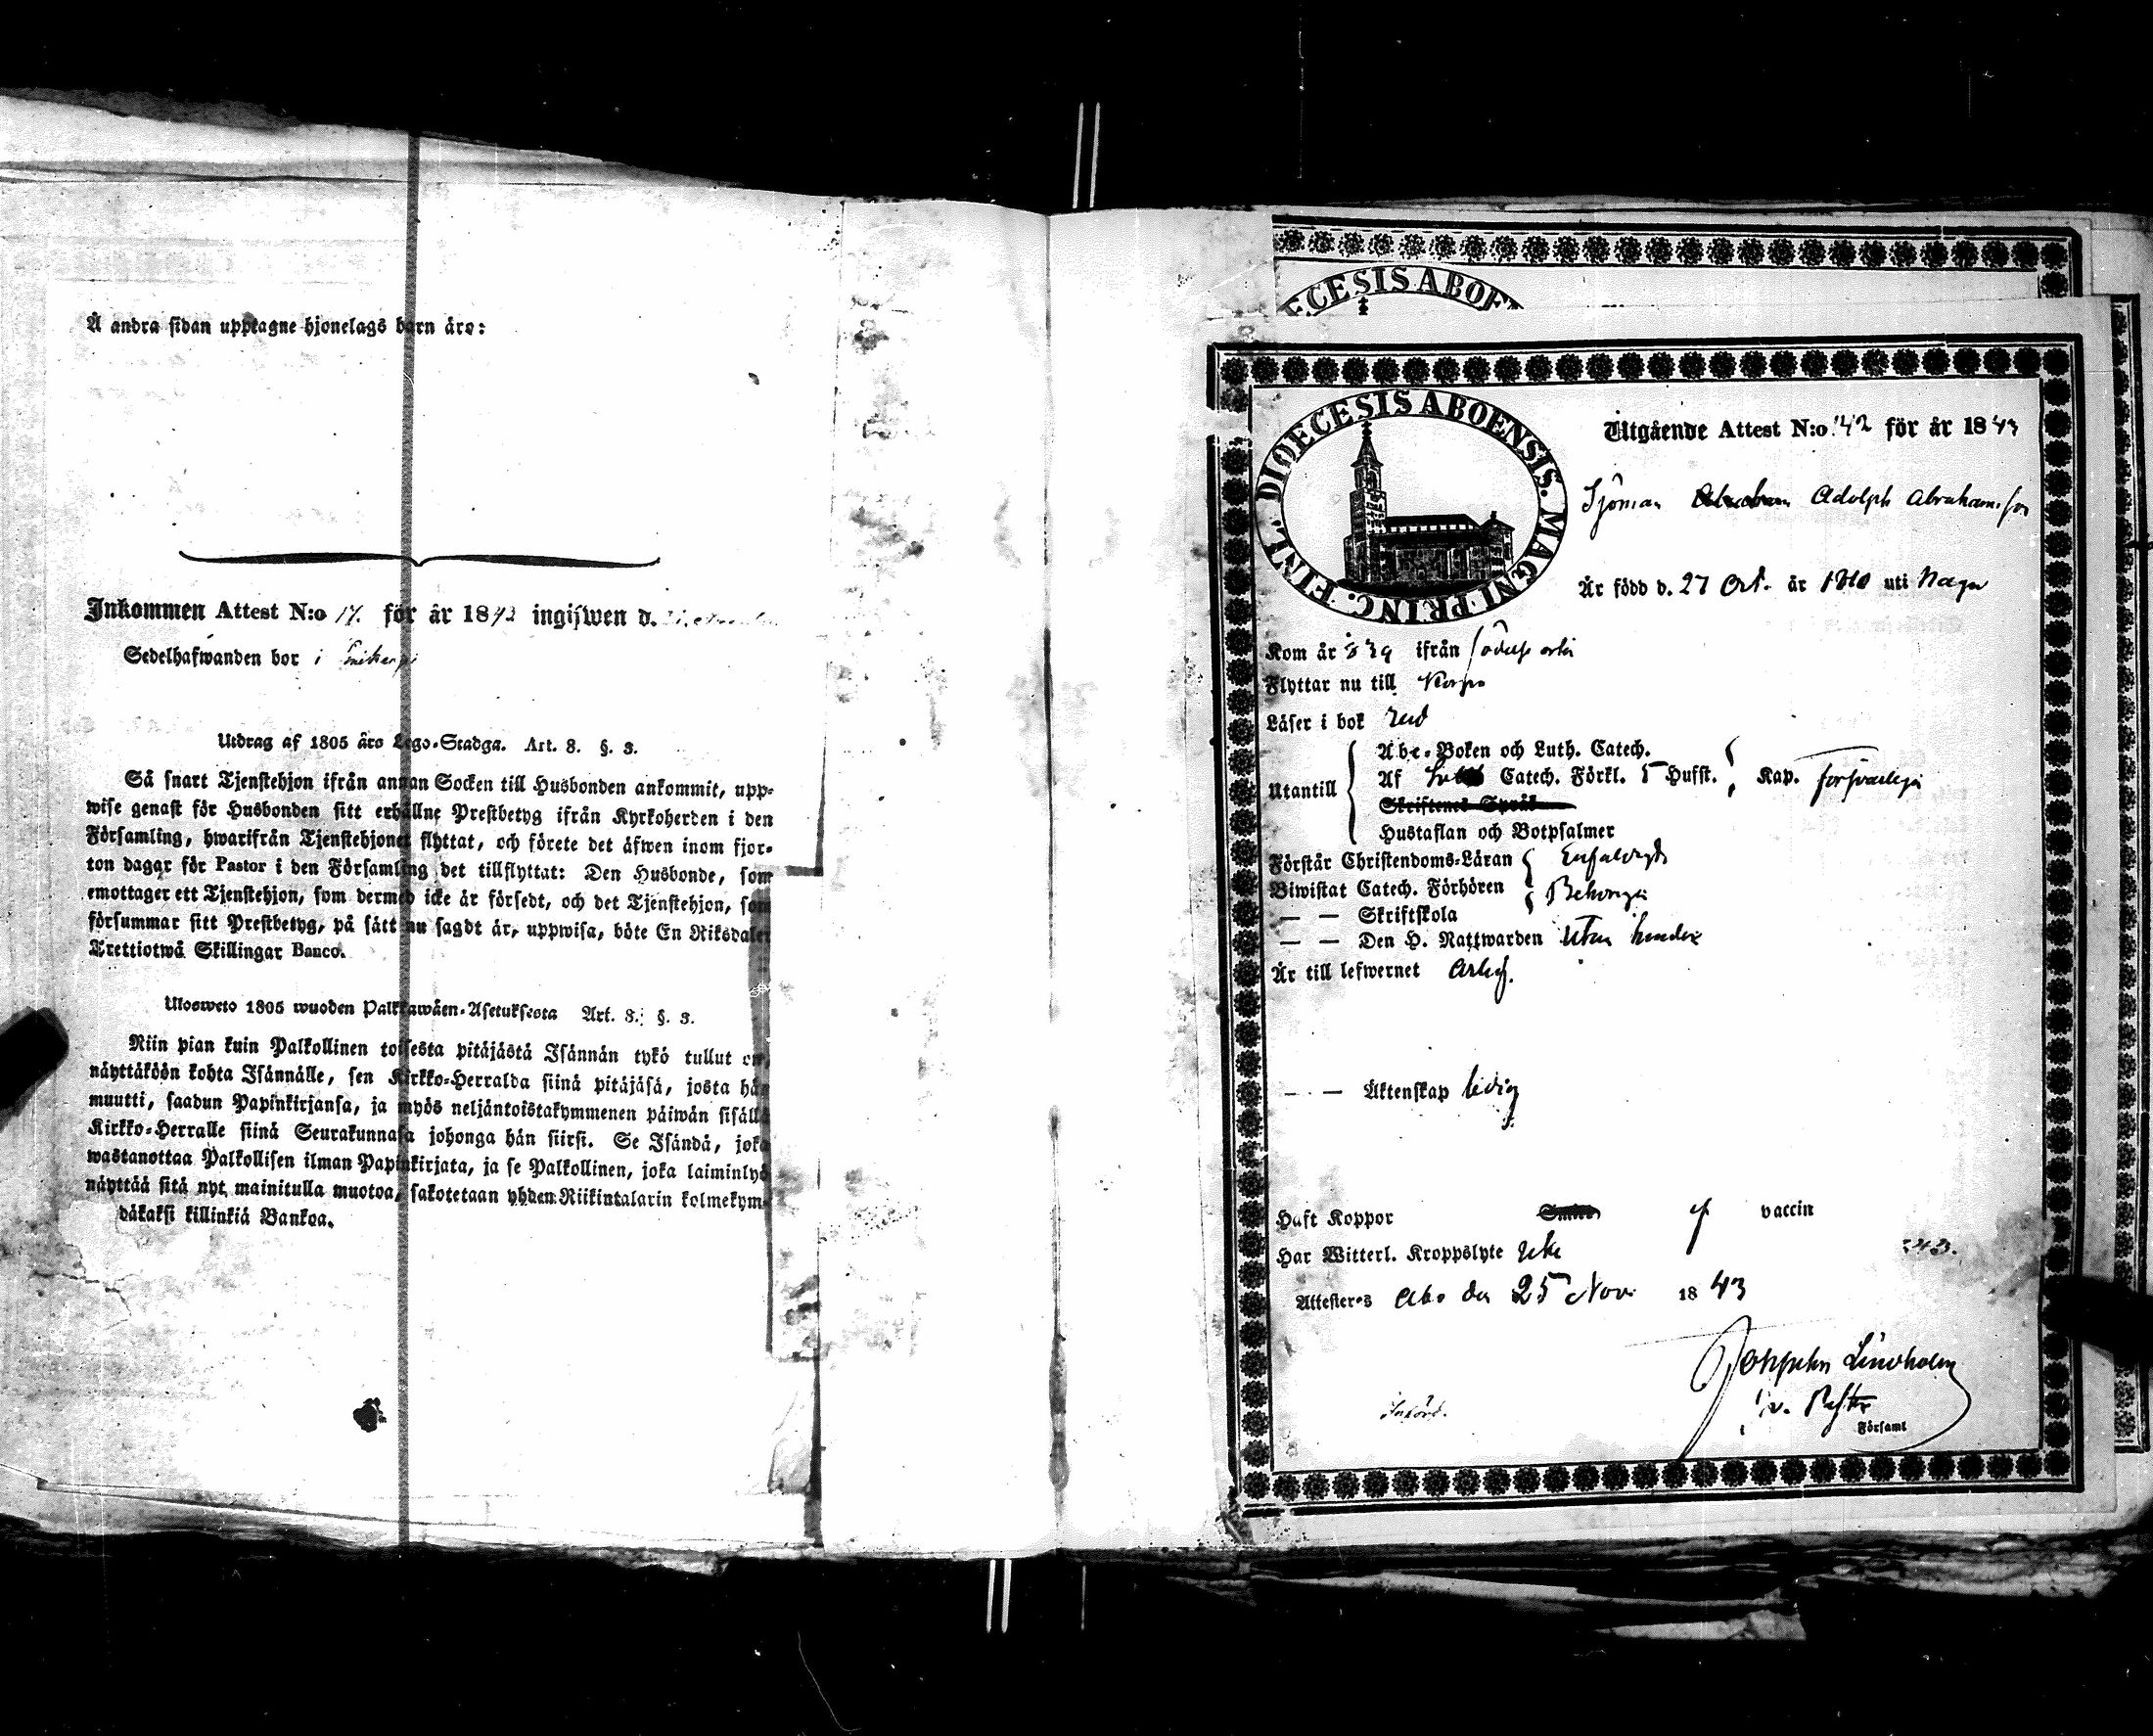 Å andra sidan upptagne hjonelags barn äro:
Inkommen Attest N:o 17. för år 1843 ingifwen d.
Sedelhafwanden bor i
Utdrag af 1805 års Lego-Stadga. Art. 8. §. 3.
Så snart Tjenstehjon ifrån annan Socken till Husbonden ankommit, upp-
wise genast för Husbonden sitt erhållne Prestbetyg ifrån Kyrkoherden i den
Församling, hwarifrån Tjenstehjonet flyttat, och förete det äfwen inom fjor-
ton dagar för Pastor i den Församling det tillflyttat: Den Husbonde, som
emottager ett Tjenstehjon, som dermed icke är försedt, och det Tjenstehjon, som
försummar sitt Prestbetyg, på sätt nu sagdt är, uppwisa, böte En Riksdaler
Trettiotwå Skillingar Banco.
Ulosweto 1805 wuoden Palkkawäen-Asetuksesta Art. 8. §. 3.
Niin pian kuin Palkollinen toisesta pitäjästä Isännän tykö tullut on,
näyttäköön kohta Isännälle, sen Kirkko-Herralda siinä pitäjäsä, josta hän
muutti, saadun Papinkirjansa, ja myös neljäntoistakymmenen päiwän sisällä
Kirkko-Herralle siinä Seurakunnasa johonga hän siirsi. Se Isändä, joka
wastanottaa Palkollisen ilman Papinkirjata, ja se Palkollinen, joka laiminlyö
näyttää sitä nyt mainitulla muotoa, sakotetaan yhden Riikintalarin kolmekym-
däkaksi killinkiä Bankoa.
DIOECESIS ABOEN
DIOECESIS ABOENSIS. MAGNI PRINC. FINL.
Utgående Attest N:o 42 för år 1843
Sjöman Adolph Abrahamsson
Är född d. 27 Oct. år 1810 uti Nagu
Kom år 839 ifrån födelse orten
Flyttar nu till Korpo
Läser i bok
Utantill
Abc-Boken och Luth. Catech.
Af Catech. Förkl. 5 Hufst. Kap. försvarligen
Skriftenes Språk
Hustaflan och Botpsalmer
Förstår Christendoms-Läran Enfaldigt
Biwistat Catech. Förhören Behörigen
— — Skriftskola
— — Den H. Nattwarden Utan hinder
Är till lefwernet ärlig.
— — Äktenskap ledig
Haft Koppor vaccin
Har Witterl. Kroppslyte Icke
Attesteres Åbo den 25 Nov. 1843
Lindholm
v. Pastor
Församl
Införd.